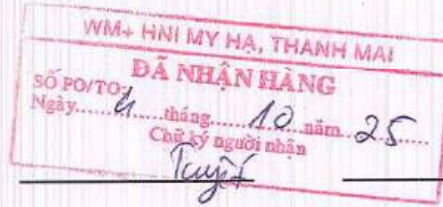 WM+ HNI MY HẠ, THANH MAI
ĐÃ NHẬN HÀNG
SỐ PO/TO:
Ngày......4......tháng......10......năm..25.....
Chữ ký người nhận